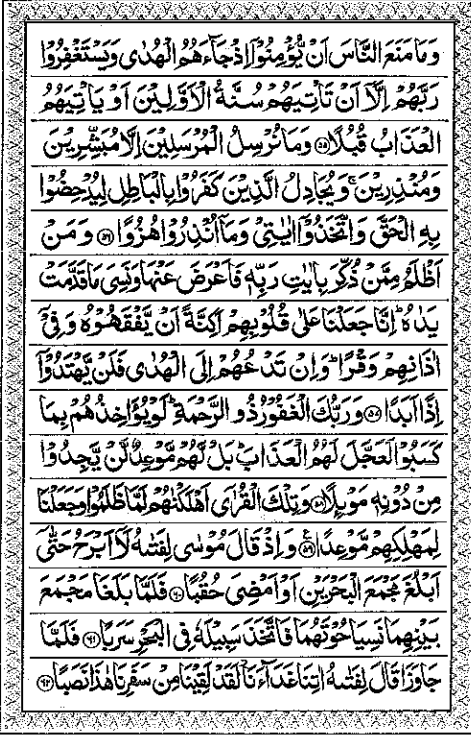 وَمَا مَنَعَ النَّاسَ اَنْ يُّؤْمِنُوْٓا اِذْ جَآءَهُمُ الْهُدٰى وَيَسْتَغْفِرُوْا
رَبَّهُمْ اِلَّآ اَنْ تَاْتِيَهُمْ سُنَّةُ الْاَوَّلِيْنَ اَوْ يَاْتِيَهُمُ
الْعَذَابُ قُبُلًا ۝۵۵ وَمَا نُرْسِلُ الْمُرْسَلِيْنَ اِلَّا مُبَشِّرِيْنَ
وَمُنْذِرِيْنَ ۚ وَيُجَادِلُ الَّذِيْنَ كَفَرُوْا بِالْبَاطِلِ لِيُدْحِضُوْا
بِهِ الْحَقَّ وَاتَّخَذُوْٓا اٰيٰتِيْ وَمَآ اُنْذِرُوْا هُزُوًا ۝۵۶ وَمَنْ
اَظْلَمُ مِمَّنْ ذُكِّرَ بِاٰيٰتِ رَبِّهٖ فَاَعْرَضَ عَنْهَا وَنَسِيَ مَا قَدَّمَتْ
يَدٰهُ ؕ اِنَّا جَعَلْنَا عَلٰى قُلُوْبِهِمْ اَكِنَّةً اَنْ يَّفْقَهُوْهُ وَفِيْٓ
اٰذَانِهِمْ وَقْرًا ؕ وَاِنْ تَدْعُهُمْ اِلَى الْهُدٰى فَلَنْ يَّهْتَدُوْٓا
اِذًا اَبَدًا ۝۵۷ وَرَبُّكَ الْغَفُوْرُ ذُو الرَّحْمَةِ ؕ لَوْ يُؤَاخِذُهُمْ بِمَا
كَسَبُوْا لَعَجَّلَ لَهُمُ الْعَذَابَ ؕ بَلْ لَّهُمْ مَّوْعِدٌ لَّنْ يَّجِدُوْا
مِنْ دُوْنِهٖ مَوْئِلًا ۝۵۸ وَتِلْكَ الْقُرٰٓى اَهْلَكْنٰهُمْ لَمَّا ظَلَمُوْا وَجَعَلْنَا
لِمَهْلِكِهِمْ مَّوْعِدًا ۝۵۹ وَاِذْ قَالَ مُوْسٰى لِفَتٰىهُ لَآ اَبْرَحُ حَتّٰٓى
اَبْلُغَ مَجْمَعَ الْبَحْرَيْنِ اَوْ اَمْضِيَ حُقُبًا ۝۶۰ فَلَمَّا بَلَغَا مَجْمَعَ
بَيْنِهِمَا نَسِيَا حُوْتَهُمَا فَاتَّخَذَ سَبِيْلَهٗ فِي الْبَحْرِ سَرَبًا ۝۶۱ فَلَمَّا
جَاوَزَا قَالَ لِفَتٰىهُ اٰتِنَا غَدَآءَنَا ۫ لَقَدْ لَقِيْنَا مِنْ سَفَرِنَا هٰذَا نَصَبًا ۝۶۲